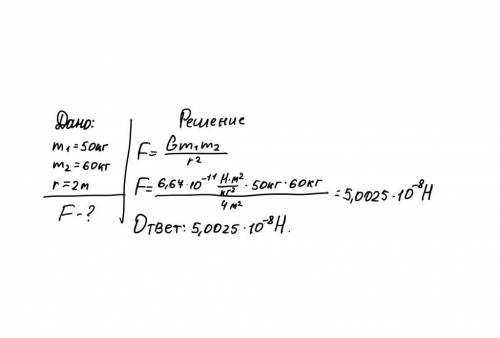 Дано:
m₁=50кг
m₂=60кг
r=2m
F-?
Решение
F= Gm₁m₂/r²
F= 6,64·10⁻¹¹ Н·m²/кг² · 50кг · 60кг / 4m² = 5,0025·10⁻⁸Н
Ответ: 5,0025·10⁻⁸Н.